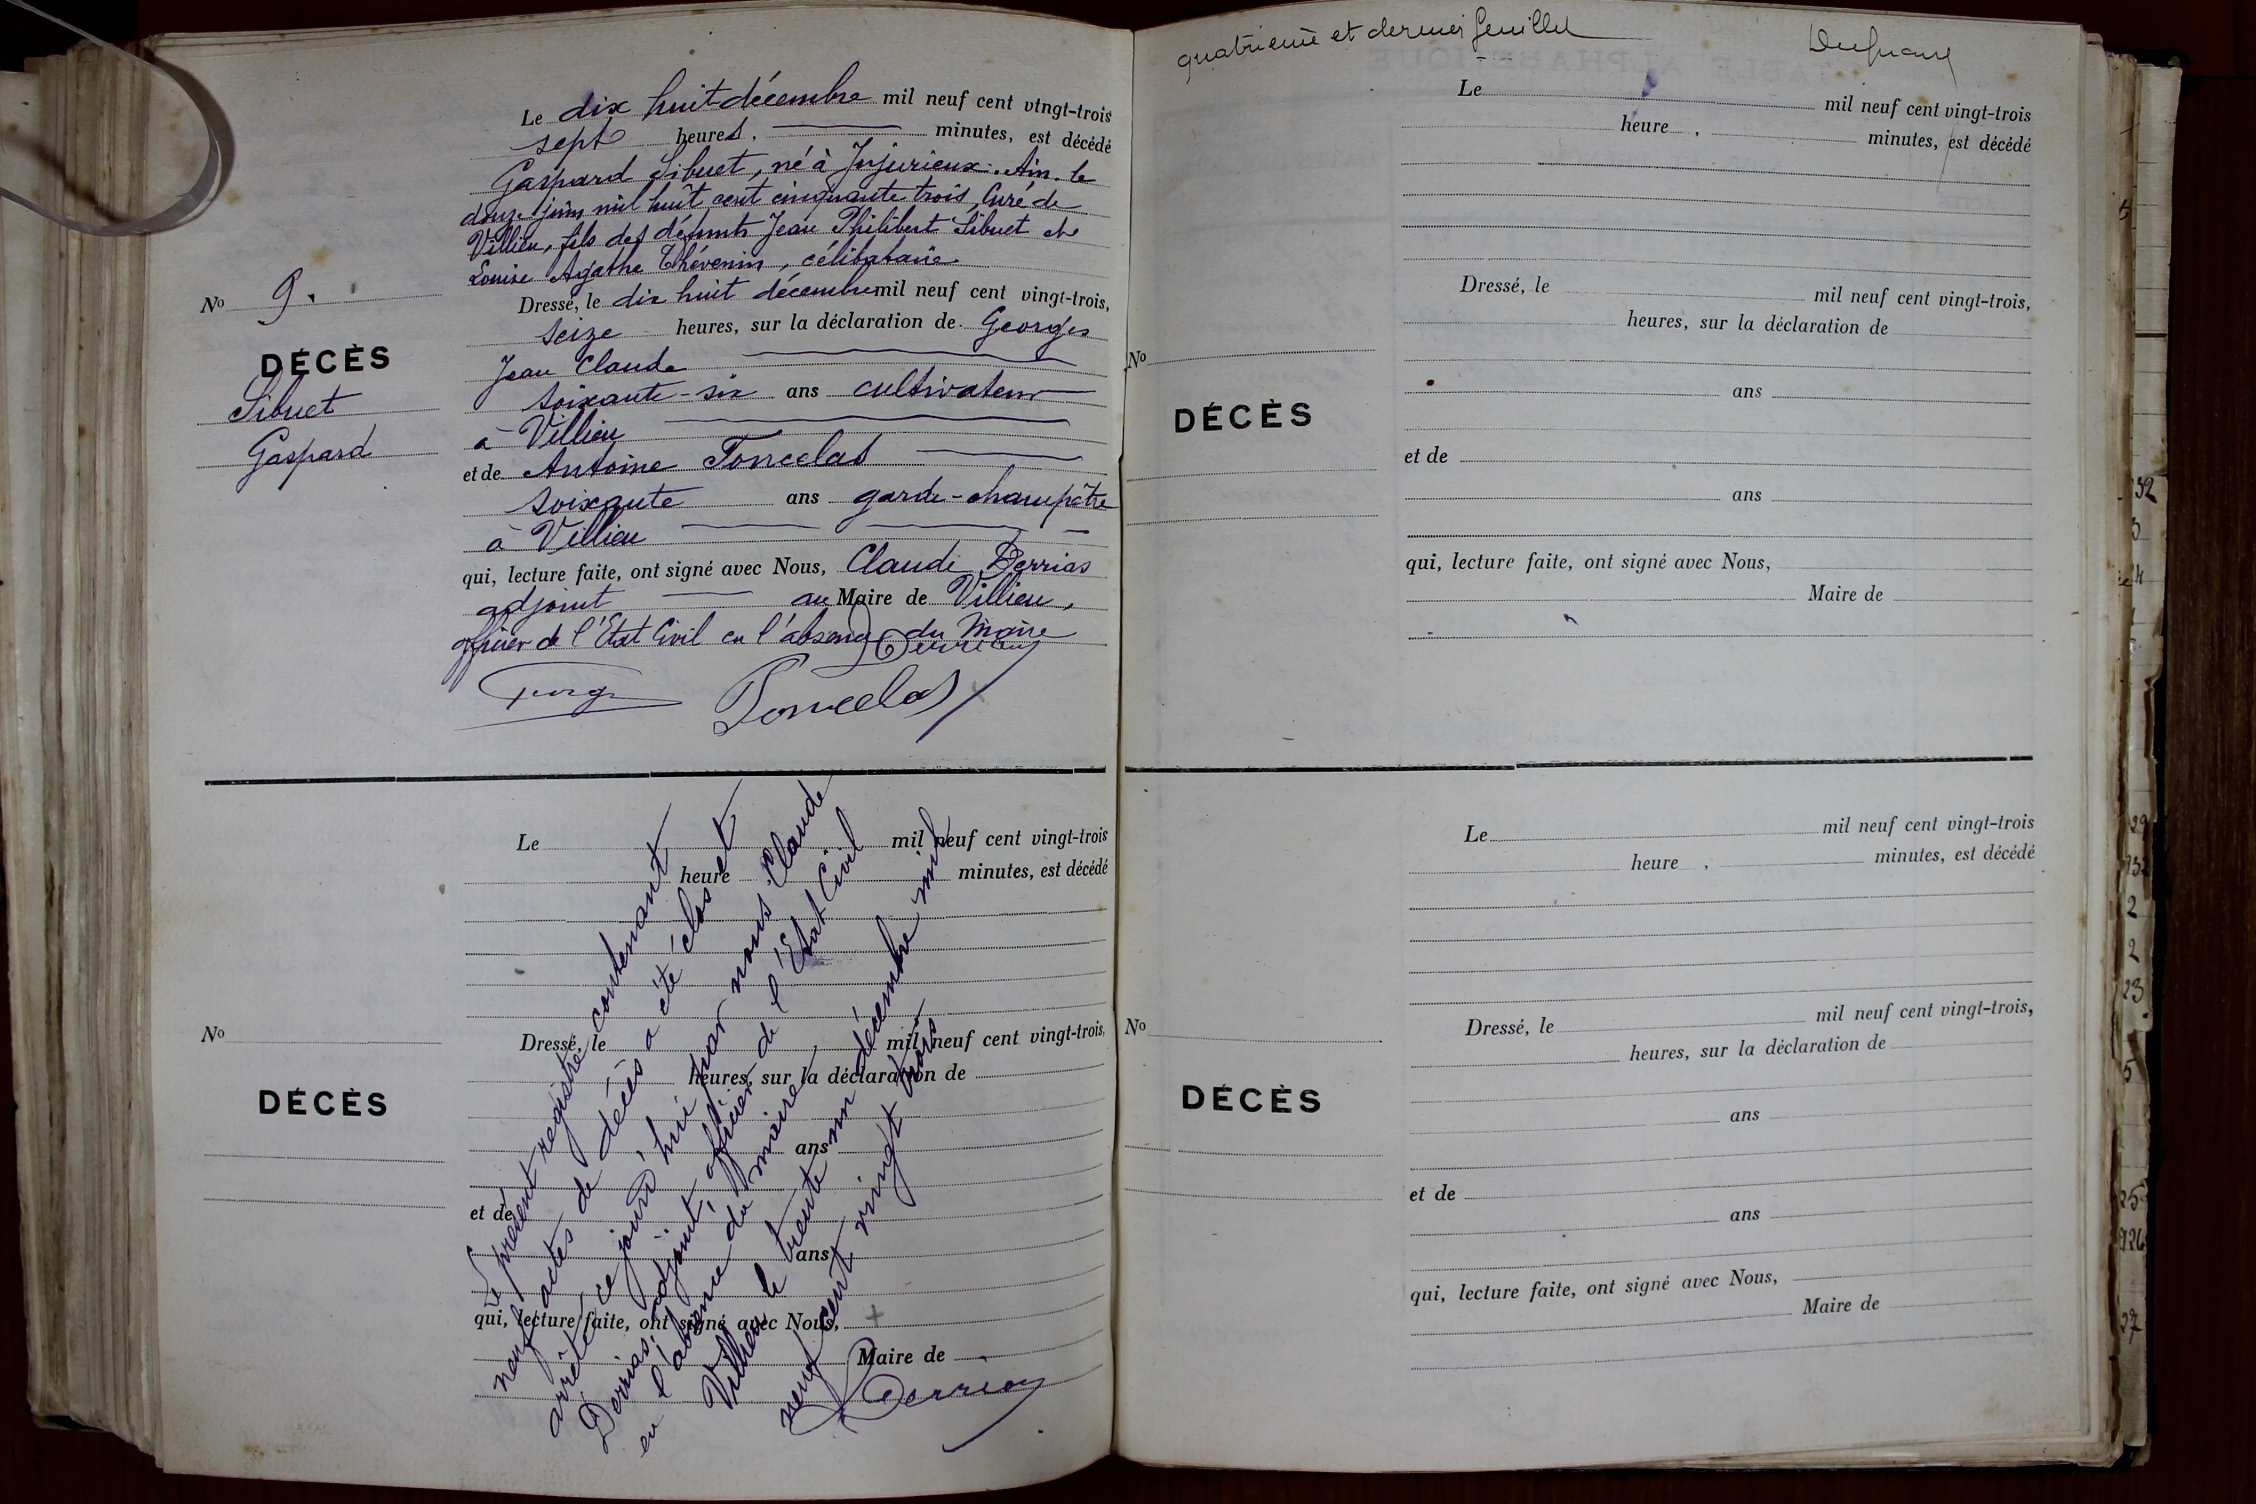 Le dix huit décembre mil neuf cent vingt-trois
sept heures. minutes, est décédé
Gaspard Sibuet, né à Jujurieux. Ain. le
douze juin mil huit cent cinquante trois, Curé de
Villieu, fils des défunts Jean Philibert Sibuet et
Louise Agathe Thévenin, célibataire.
No 9.
DÉCÈS
Sibuet
Gaspard
Dressé, le dix huit décembre mil neuf cent vingt-trois,
seize heures, sur la déclaration de Georges
Jean Claude
soixante-six ans cultivateur
à Villieu
et de Antoine Poncelas
soixante ans garde-champêtre
à Villieu
qui, lecture faite, ont signé avec Nous, Claude Derrias
adjoint au Maire de Villieu,
officier de l'Etat Civil en l'absence du Maire
Derrias
Georges
Poncelas
Le mil neuf cent vingt-trois
heure minutes, est décédé
No
DÉCÈS
Dressé, le mil neuf cent vingt-trois,
heures, sur la déclaration de
ans
et de
ans
qui, lecture faite, ont signé avec Nous,
Maire de
Le présent registre contenant
neuf actes de décès a été clos et
arrêté ce jourd'hui par nous Claude
Derrias, adjoint, officier de l'Etat Civil
en l'absence du maire
Villieu le trente un décembre mil
neuf cent vingt trois
Derrias
quatrième et dernier feuillet
Le mil neuf cent vingt-trois
heure , minutes, est décédé
No
DÉCÈS
Dressé, le mil neuf cent vingt-trois,
heures, sur la déclaration de
ans
et de
ans
qui, lecture faite, ont signé avec Nous,
Maire de
Le mil neuf cent vingt-trois
heure , minutes, est décédé
No
DÉCÈS
Dressé, le mil neuf cent vingt-trois,
heures, sur la déclaration de
ans
et de
ans
qui, lecture faite, ont signé avec Nous,
Maire de